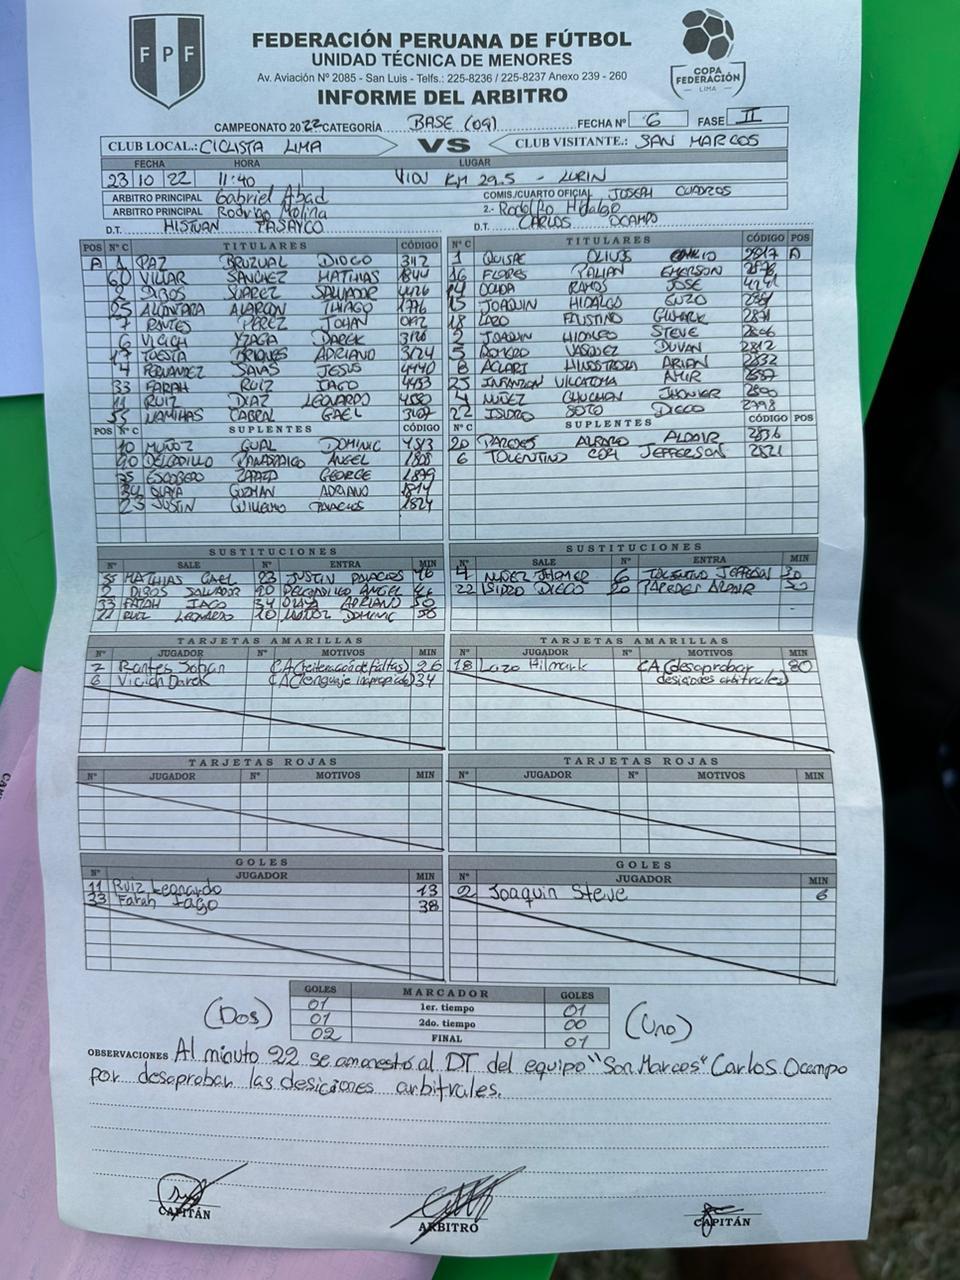 FPF
COPA
FEDERACIÓN
LIMA
FEDERACIÓN PERUANA DE FÚTBOL
UNIDAD TÉCNICA DE MENORES
Av. Aviación Nº 2085 - San Luis - Telfs.: 225-8236 / 225-8237 Anexo 239 - 260
INFORME DEL ARBITRO
CAMPEONATO 2022 CATEGORÍA BASE (09) FECHA Nº 6 FASE II
CLUB LOCAL.: CICLISTA LIMA VS CLUB VISITANTE.: SAN MARCOS
FECHA HORA LUGAR
23 10 22 11:40 KM 29.5 - LURIN
ARBITRO PRINCIPAL Gabriel Abad COMIS./CUARTO OFICIAL JOSEPH CUADROS
ARBITRO PRINCIPAL Rodrigo Molina 2.- Rodolfo Hidalgo
D.T. PASAYCO D.T. CARLOS OCAMPO
POS Nº C TITULARES CÓDIGO
A 1 PAZ BRUZUAL DIOGO 3112
60 VILLAR SANCHEZ MATHIAS 1844
2 DIBOS SUAREZ SALVADOR
25 ALCANTARA ALARCON THIAGO 1776
7 PEREZ JOHAN
6 VICICH YZAGA DAREK 3120
17 TUESTA BRIONES ADRIANO 3124
4 FERNANDEZ SALAS JESUS 4440
33 FARAH RUIZ IAGO 4453
11 RUIZ DIAZ LEONARDO 4580
55 MAMIHAS CABRAL GAEL 3107
POS Nº C SUPLENTES CÓDIGO
10 MUÑOZ GUAL DOMINIC
90 DELGADILLO ANGEL 1808
35 ESCOBEDO GEORGE 1899
34 OLAYA GUZMAN ADRIANO 1814
23 JUSTIN GUILLERMO PALACIOS 1824
Nº C TITULARES CÓDIGO POS
1 QUISPE 2817 A
16 FLORES PALIAN EMERSON
14 OCHOA RAMOS JOSE
15 JOAQUIN HIDALGO ENZO
18 LAZO FAUSTINO 2831
2 JOAQUIN HIDALGO STEVE 2806
5 ROMERO VASQUEZ DUVAN 2812
8 ACLARI HINOSTROZA ARIAN 2832
23 INFANZON VILCATOMA AMIR
4 NUÑEZ CHUCHAN JHOMER 2800
22 ISIDRO SOTO DIEGO 2798
Nº C SUPLENTES CÓDIGO POS
20 PAREDES ALFARO ALDAIR 2836
6 TOLENTINO JEFFERSON 2821
SUSTITUCIONES
Nº SALE Nº ENTRA MIN
55 MATHIAS GAEL 23 JUSTIN PALACIOS 46
2 DIBOS SALVADOR 90 DELGADILLO ANGEL
33 FARAH IAGO 34 OLAYA ADRIANO 50
11 RUIZ LEONARDO 10 MUÑOZ DOMINIC 50
SUSTITUCIONES
Nº SALE Nº ENTRA MIN
4 NUÑEZ JHOMER 6 TOLENTINO JEFFERSON 30
22 ISIDRO DIEGO 20 PAREDES ALDAIR 50
TARJETAS AMARILLAS
Nº JUGADOR Nº MOTIVOS MIN
7 Johan CA (reiteración de faltas) 26
6 Vicich Darek CA (lenguaje inapropiado) 34
TARJETAS AMARILLAS
Nº JUGADOR Nº MOTIVOS MIN
18 Lazo Hilmark CA (desaprobar 80
desiciones arbitrales)
TARJETAS ROJAS
Nº JUGADOR Nº MOTIVOS MIN
TARJETAS ROJAS
Nº JUGADOR Nº MOTIVOS MIN
GOLES
Nº JUGADOR MIN
11 Ruiz Leonardo 13
33 Farah Iago 38
GOLES
JUGADOR MIN
02 Joaquin Steve 6
GOLES MARCADOR GOLES
01 1er. tiempo 01
01 2do. tiempo 00
02 FINAL 01
(Dos) (Uno)
OBSERVACIONES Al minuto 22 se amonestó al DT del equipo "San Marcos" Carlos Ocampo
por desaprobar las desiciones arbitrales.
CAPITÁN ARBITRO CAPITÁN